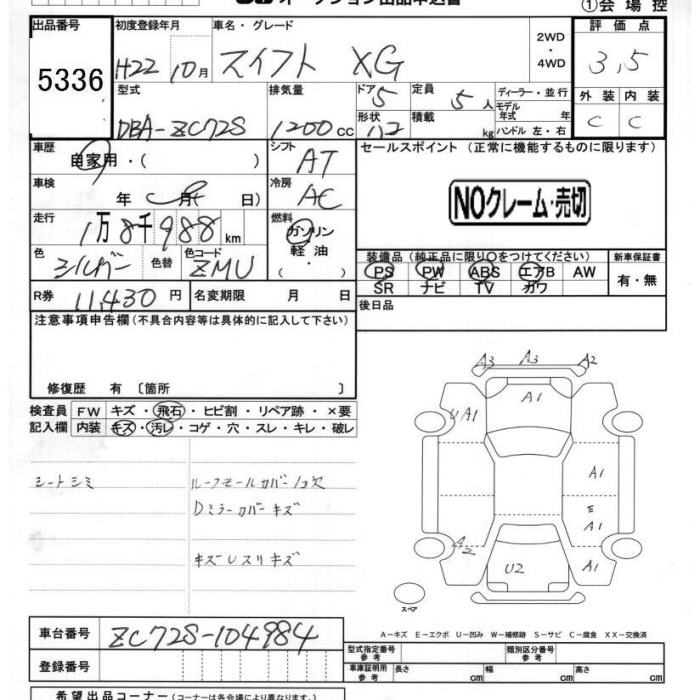 ①会場控
出品番号 初度登録年月 車名・グレード 2WD ・ 4WD 評価点
5336 H22 10月 スイフト XG 3.5
型式 排気量 ドア 5 定員 5人 ディーラー・並行 外装 内装
DBA-ZC72S 1200cc 形状 ハコ 積載 kg モデル年式 年 ハンドル 左・右 C C
車歴 シフト セールスポイント (正常に機能するものに限ります)
自家用・( ) AT
車検 冷房
年 月 日) AC NOクレーム・売切
走行 燃料
1万 8千 988 km ガソリン
色 色替 色コード 軽油 装備品 (純正品に限り○をつけてください) 新車保証書
シルバー ZMU ・( ) PS PW ABS エアB AW 有・無
R券 11,430円 名変期限 月 日 SR ナビ TV カワ
注意事項申告欄 (不具合内容等は具体的に記入して下さい) 後日品
修復歴 有 〔箇所 〕
検査員 FW キズ・飛石・ヒビ割・リペア跡・×要
記入欄 内装 キズ・汚レ・コゲ・穴・スレ・キレ・破レ
シートシミ ルーフモールカバー1ヶ欠
Dミラーカバーキズ
キズUスリキズ
A3 A3 A2
A1
UA1
A1
E
A1
A2
U2 A1
スペア
A-キズ E-エクボ U-凹み W-補修跡 S-サビ C-腐食 XX-交換済
車台番号 ZC72S-104984
登録番号
型式指定番号 参考 類別区分番号 参考
車庫証明用 参考 長さ cm 幅 cm 高さ cm
希望出品コーナー (コーナーは各会場により異なります。)